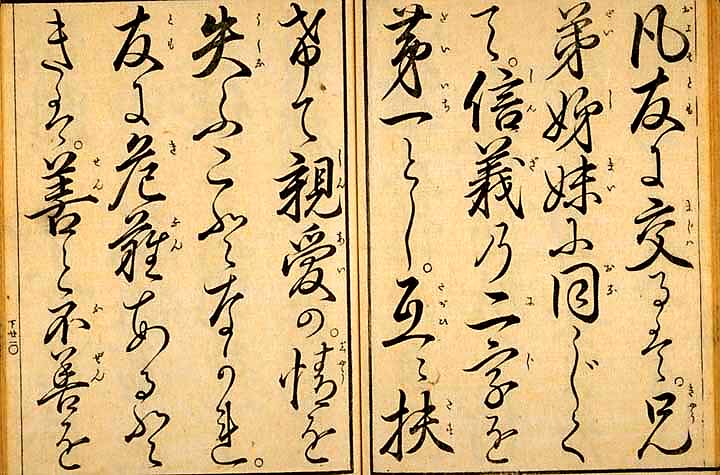 凡友に交るは。兄
弟姉妹に同じく
て。信義の二字を
第一とし。互に扶
けて親愛の。情を
失ふことなかれ。
友に危難あると
きは。善と不善を